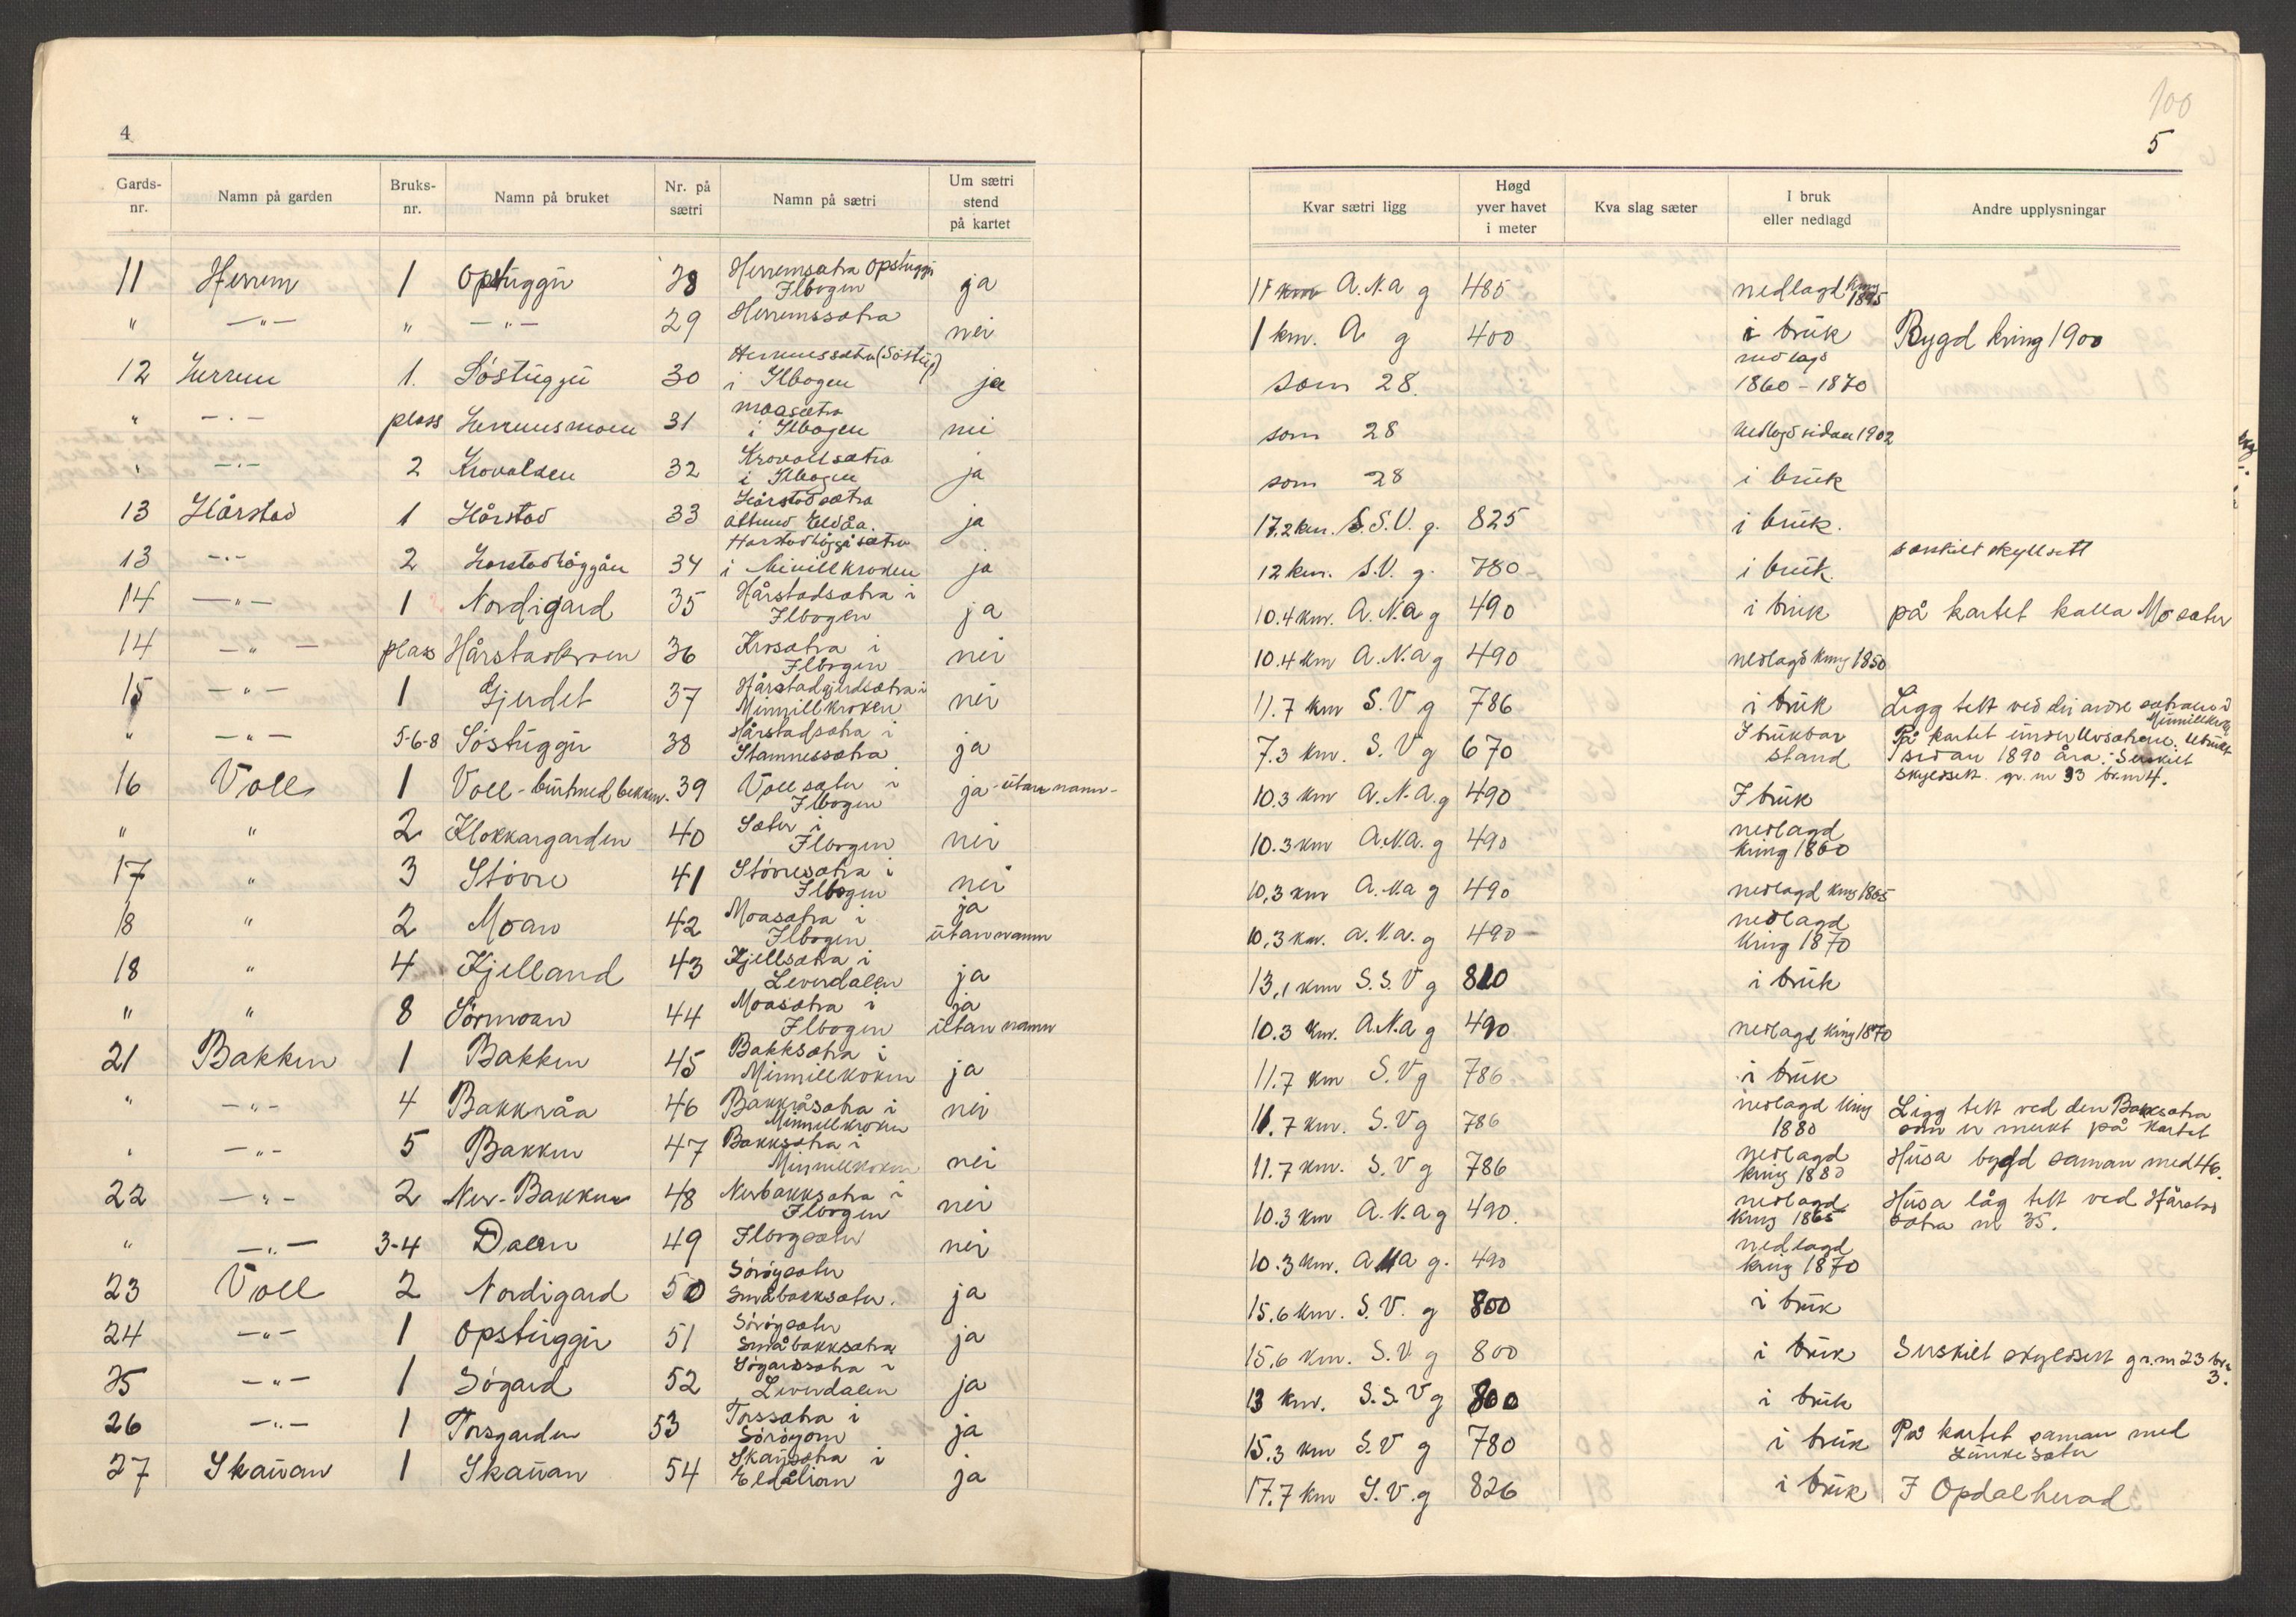 4
Gards-nr. Namn på garden Bruks-nr. Namn på bruket Nr. på sætri Namn på sætri Um sætri stend på kartet
11 Herrem 1 Opstuggu 28 Herremsætra Opstuggu Ilbogen ja
" —"— " —"— 29 Herremssætra nei
12 Herrem 1. Søstuggu 30 Herremssætra (Søstug) i Ilbogen ja
" —"— plass Herremsmoen 31 Moasætra i Ilbogen nei
" —"— 2 Krovollen 32 Krovollsætra i Ilbogen ja
13 Hårstad 1 Hårstad 33 Hårstadsætra attmed Eldåa. ja
13 —"— 2 34 i Minillkroken ja
14 —"— 1 Nordigard 35 Hårstadsætra i Ilbogen ja
14 —"— plass Hårstadkroen 36 Krosætra i Ilbogen nei
15 —"— 1 Gjerdet 37 Hårstadgjerdsætra i Minnillkroken nei
" —"— 5-6-8 Søstuggu 38 Hårstadsætra i Stamnessætra ja
16 Voll 1 Voll-burtmed bekken. 39 Vollsæter i Ilbogen ja -utan namn-
" " 2 Klokkargarden 40 Sæter i Ilbogen nei
17 " 3 Støvre 41 Støvresætra i Ilbogen nei
18 " 2 Moan 42 Moasætra i Ilbogen ja utan namn
18 " 4 Kjelland 43 Kjellsætra i Leverdalen ja
" " 8 Sørmoan 44 Moasætra i Ilbogen ja utan namn
21 Bakken 1 Bakken 45 Bakksætra i Minnillkroken ja
" —"— 4 Bakkråa 46 Bakkråsætra i Minnillkroken nei
" —"— 5 Bakken 47 Bakksætra i Minnillkroken nei
22 —"— 2 Ner-Bakken 48 Nerbakksætra i Ilbogen nei
" —"— 3-4 Dalen 49 Ilbogsæter nei
23 Voll 2 Nordigard 50 Sørøysæter Småbakksæter. ja
24 —"— 1 Opstuggu 51 Sørøysæter Småbakksætra ja
25 —"— 1 Søgard 52 Søgardssætra i Leverdalen ja
26 —"— 1 Torsgarden 53 Torssætra i Sørøyom ja
27 Skauan 1 Skauan 54 Skausætra i Eldålian ja
100
5
Kvar sætri ligg Høgd yver havet i meter Kva slag sæter I bruk eller nedlagd Andre upplysningar
11 km A.N.A g 485 nedlagd kring 1895
1 km. A g 400 i bruk Bygd kring 1900
som 28. nedlagd 1860-1870
som 28 nedlagd sidan 1902
som 28 i bruk
17,2 km. S.S.V. g. 825 i bruk.
12 km. S.V. g. 780 i bruk. særskilt skyllsett
10.4 km. A.N.A g 490 i bruk på kartet kalla Mosæter
10.4 km A.N.A g 490 nedlagd kring 1850
11.7 km S.V g 786 i bruk Ligg tett ved dei andre sætrane i Minnillkroken
7.3 km. S.V g 670 I brukbar stand På kartet under Uvsætrane. Ubrukt sidan 1890 åra. Serskilt skyldsett. gr. nr 33 br.nr 4.
10.3 km A.N.A. g 490 I bruk
10.3 km A.N.A. g 490 nedlagd kring 1860
10,3 km A.N.A g 490 nedlagd kring 1865
10,3 km. A.N.A. g 490 nedlagd kring 1870
13,1 km S.S.V g 810 i bruk
10.3 km. A.N.A g 490 nedlagd kring 1870
11.7 km S.V g 786 i bruk
11.7 km. S.V g 786 nedlagd kring 1880 Ligg tett ved den Baksætra som er merkt på kartet
11.7 km. S.V g 786 nedlagd kring 1880 Husa bygd saman med 46.
10.3 km A.N.A g 490. nedlagd kring 1865 Husa låg tett ved Hårstad sætra nr 35.
10.3 km. A.N.A g. 490 nedlagd kring 1870
15.6 km. S.V. g 800 i bruk
15,6 km. S.V g 800 i bruk Serskilt skyldsett gr.nr 23 br. 3.
13 km. S.S.V g 800 i bruk
15.3 km S.V g 780 i bruk På kartet saman med Lunkesæter
17.7 km S.V. g 826 i bruk I Opdal herad